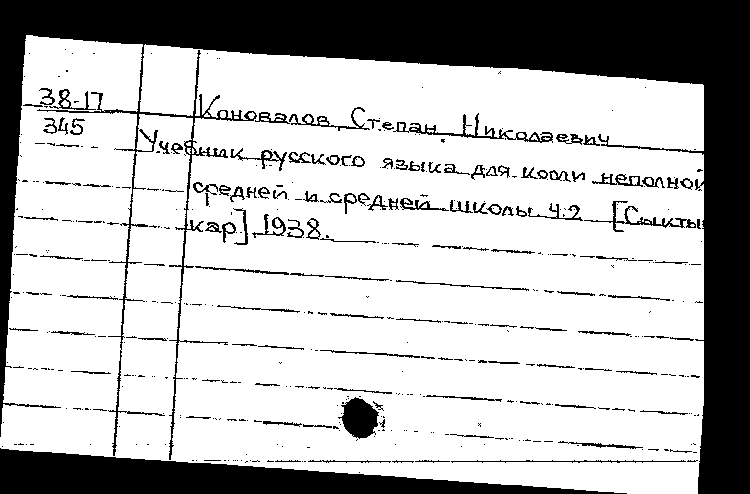 38-17
345
Коновалов, Степан Николаевич
Учебник русского языка для коми неполной
средней и средней школы ч.2 [Сыктыв
кар], 1938.